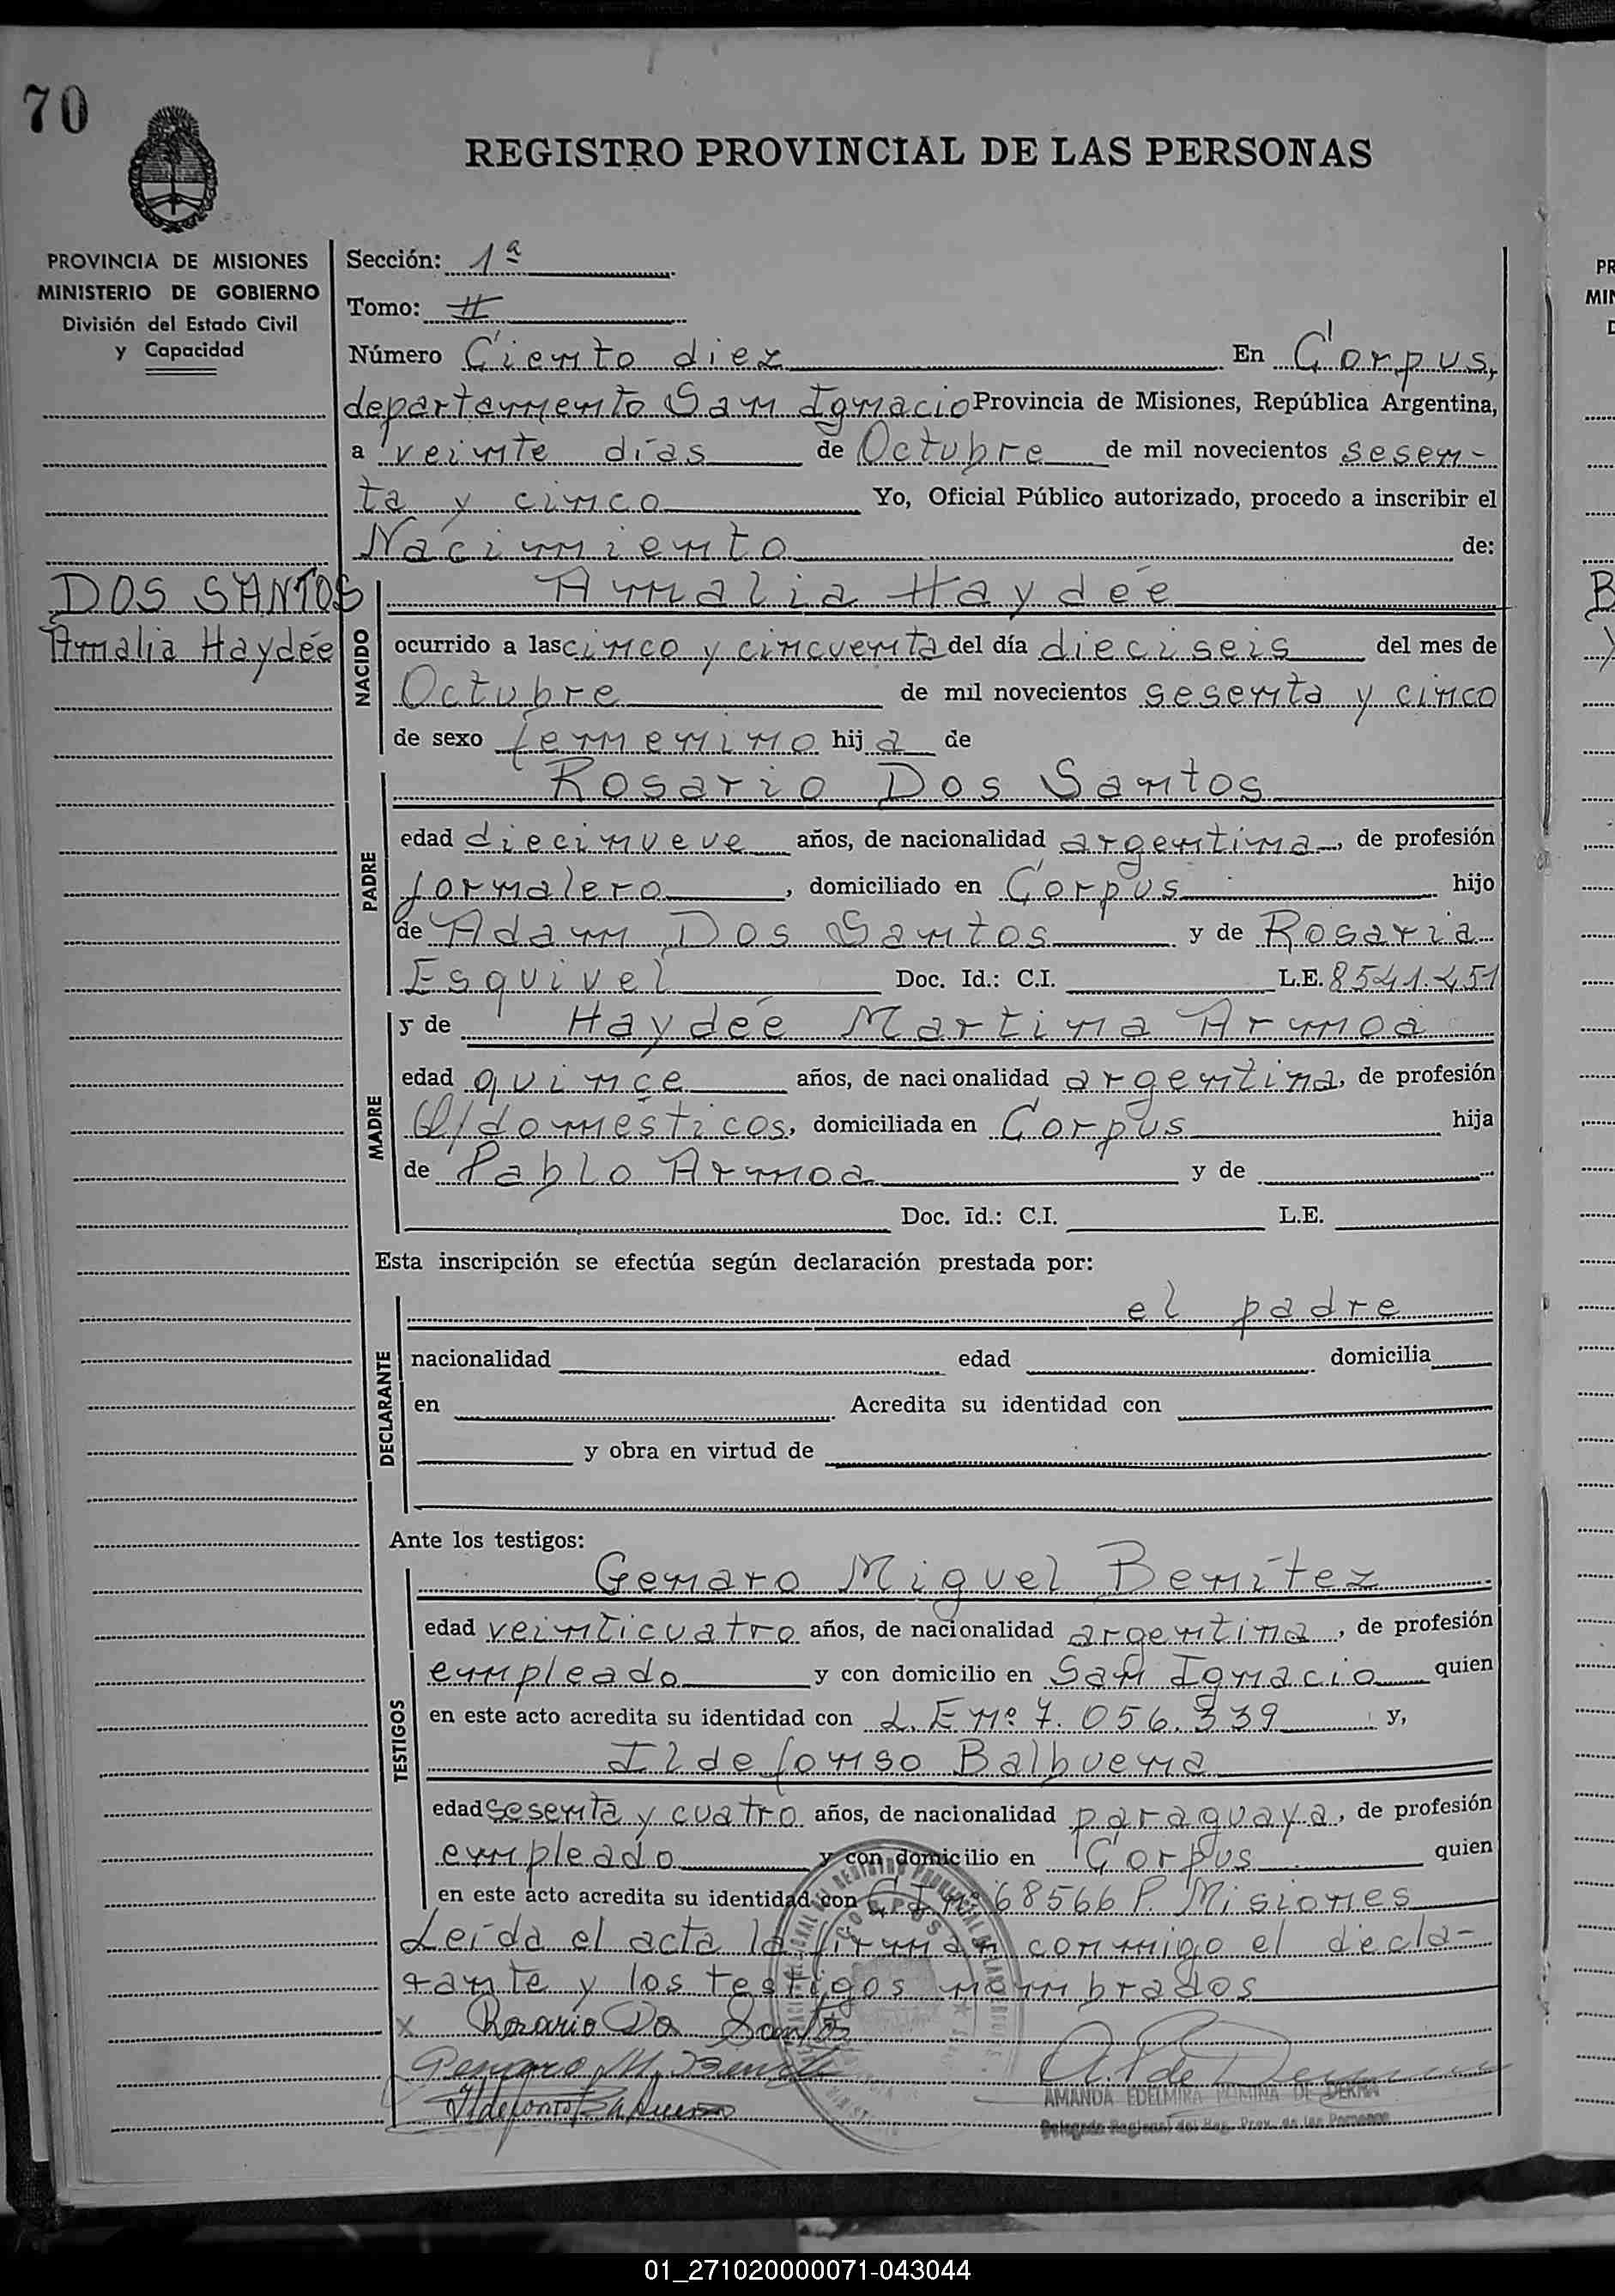 70
REGISTRO PROVINCIAL DE LAS PERSONAS
PROVINCIA DE MISIONES
MINISTERIO DE GOBIERNO
División del Estado Civil
y Capacidad
DOS SANTOS
Amalia Haydée
Sección: 1ª
Tomo: II
Número Ciento diez En Corpus,
departamento San Ignacio Provincia de Misiones, República Argentina,
a veinte días de Octubre de mil novecientos sesen-
ta y cinco Yo, Oficial Público autorizado, procedo a inscribir el
Nacimiento de:
NACIDO
Amalia Haydée
ocurrido a las cinco y cincuenta del día dieciseis del mes de
Octubre de mil novecientos sesenta y cinco
de sexo femenino hija de
PADRE
Rosario Dos Santos
edad diecinueve años, de nacionalidad argentina, de profesión
jornalero, domiciliado en Corpus hijo
de Adam Dos Santos y de Rosaria
Esquivel Doc. Id.: C.I. L.E. 8541.451
MADRE
y de Haydée Martina Armoa
edad quince años, de nacionalidad argentina, de profesión
Q/domésticos, domiciliada en Corpus hija
de Pablo Armoa y de
Doc. Id.: C.I. L.E.
Esta inscripción se efectúa según declaración prestada por:
DECLARANTE
el padre
nacionalidad edad domicilia
en Acredita su identidad con
y obra en virtud de
Ante los testigos:
TESTIGOS
Genaro Miguel Benítez
edad veinticuatro años, de nacionalidad argentina, de profesión
empleado y con domicilio en San Ignacio quien
en este acto acredita su identidad con L.E nº 7.056.339 y,
Ildefonso Balbuena
edad sesenta y cuatro años, de nacionalidad paraguaya, de profesión
empleado y con domicilio en Corpus quien
en este acto acredita su identidad con C.I. nº 68566 P. Misiones
Leída el acta la firman conmigo el decla-
rante y los testigos nombrados
x Rosario Do Santos
Genaro M. Benitez
Ildefonso Balbuena
AMANDA EDELMIRA ROMINA DE DERNA
Delegada Regional del Reg. Prov. de las Personas
CORPUS
PR
MIN
D
B
01_271020000071-043044